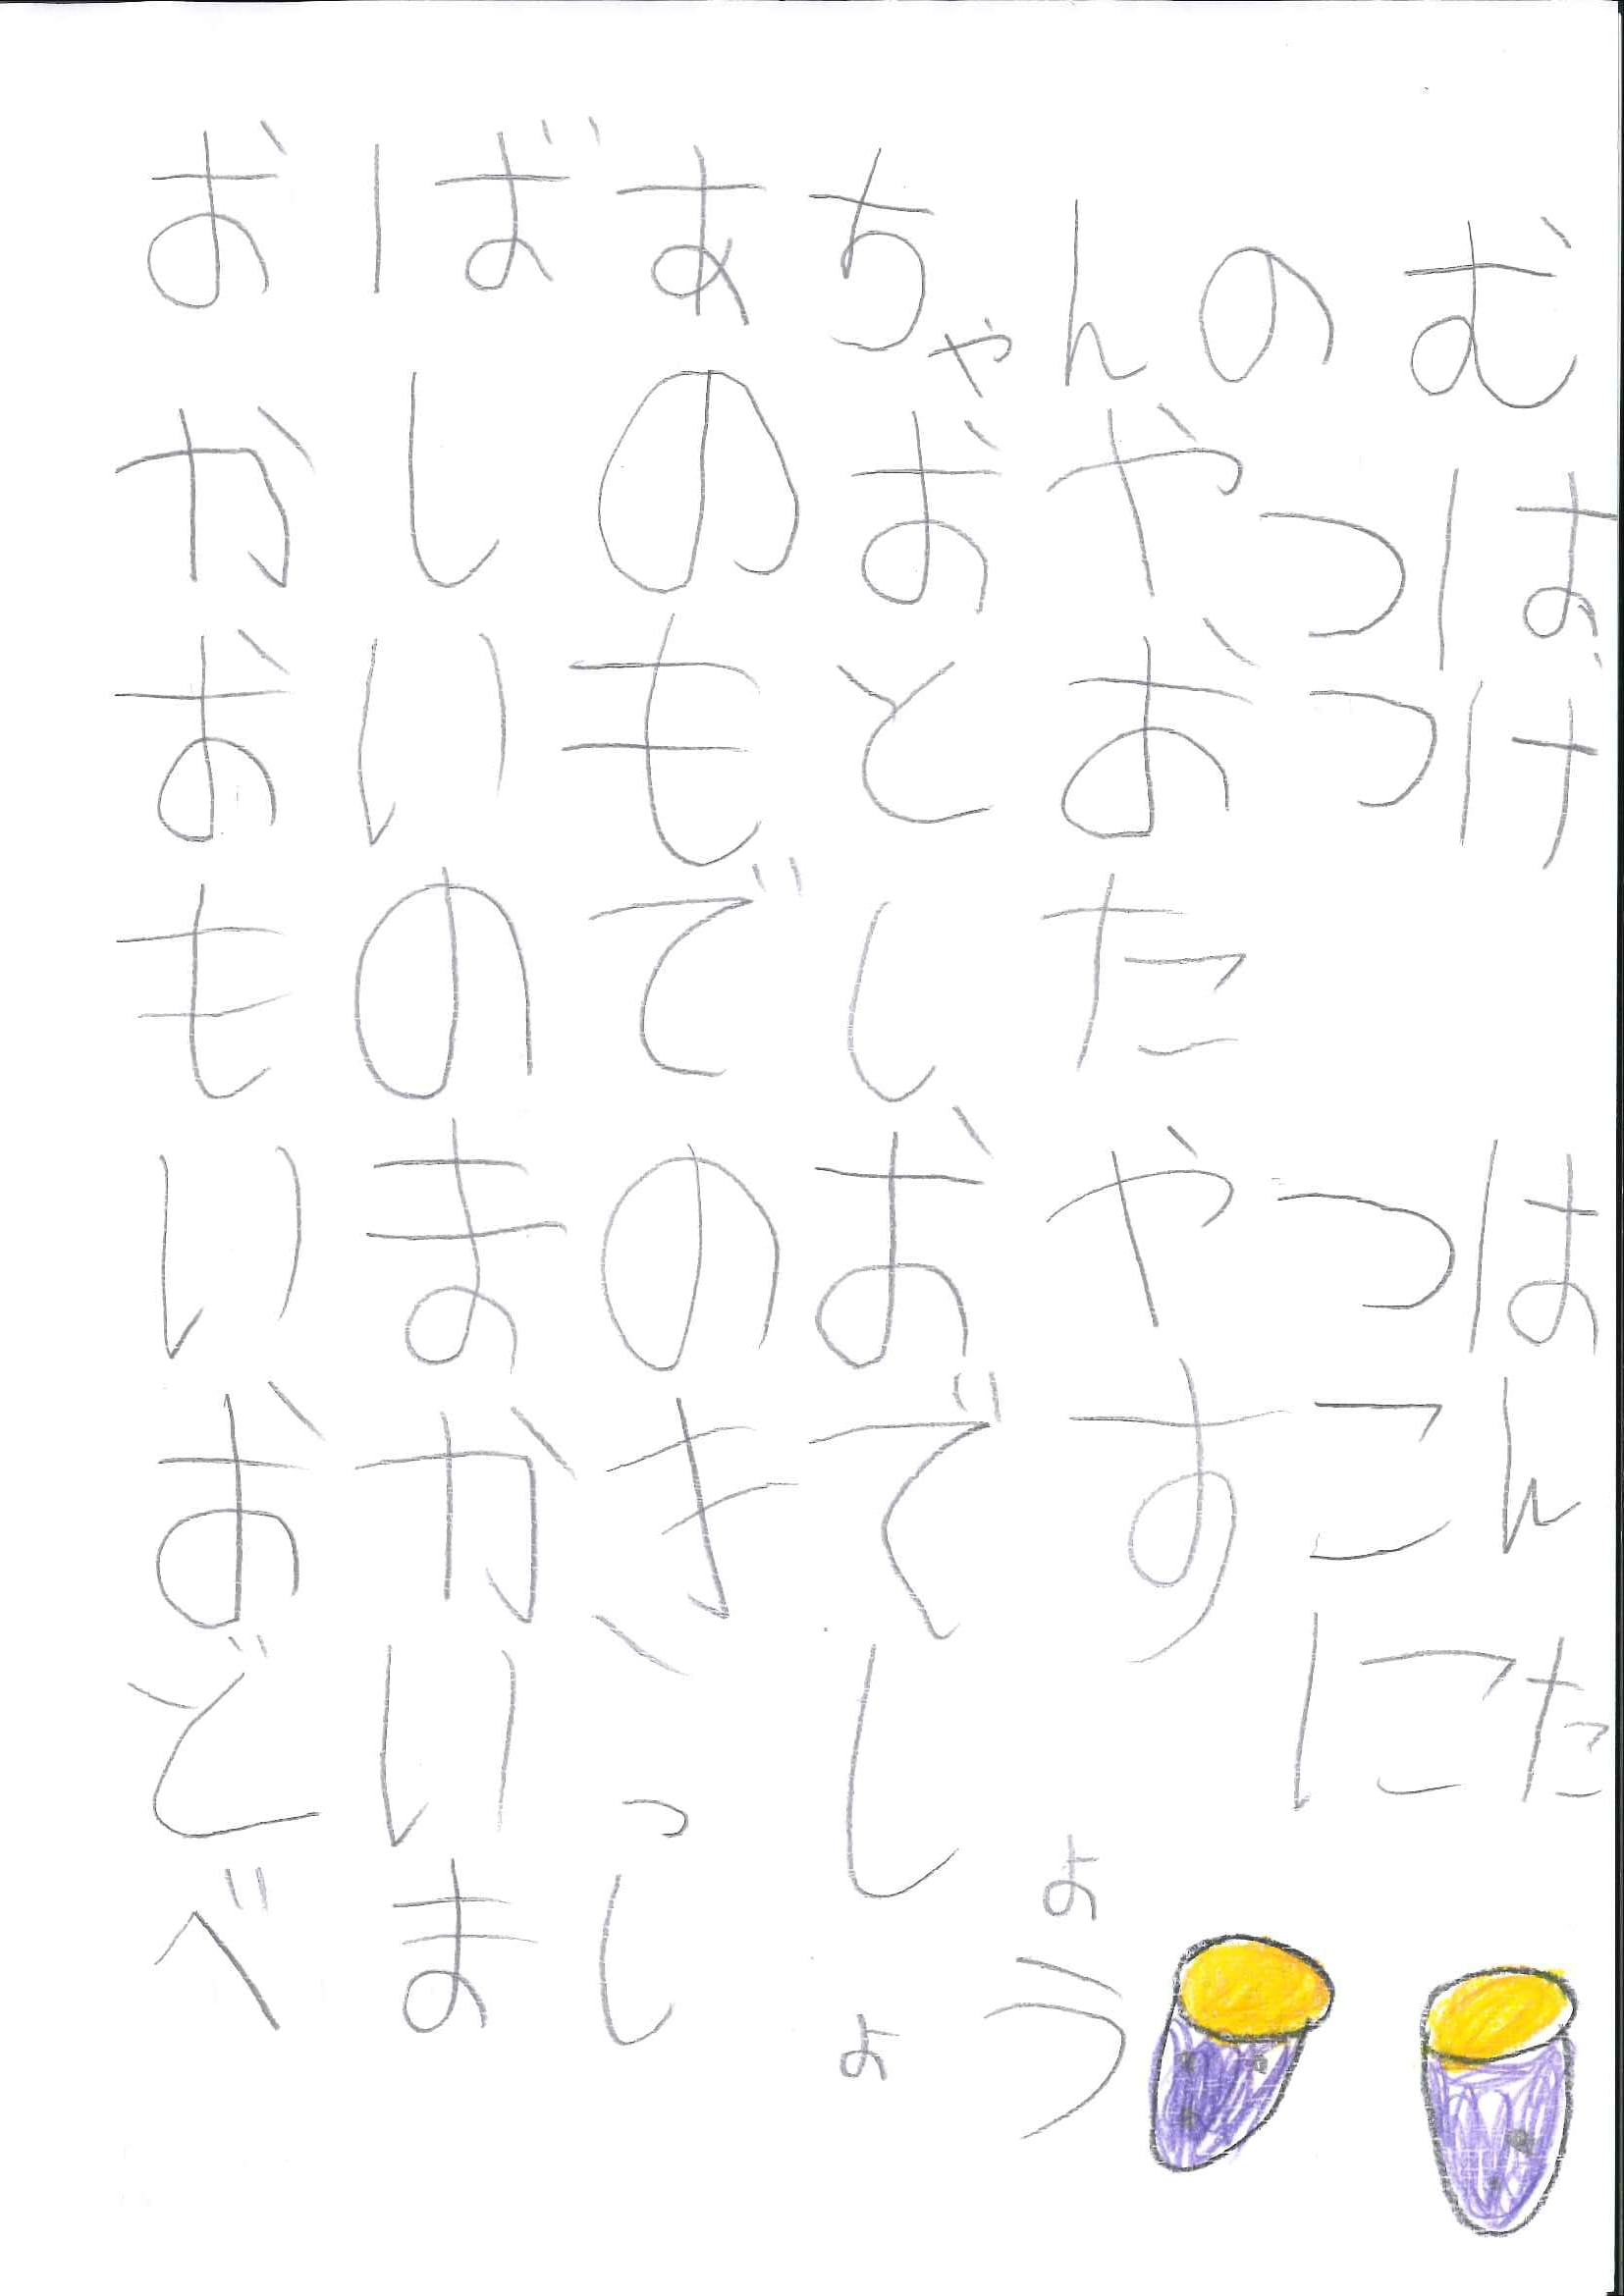 おばあちゃんのむ
かしのおやつは
おいもとおつけ
ものでした
いまのおやつは
おかきですこん
どいっしょにた
べましょう